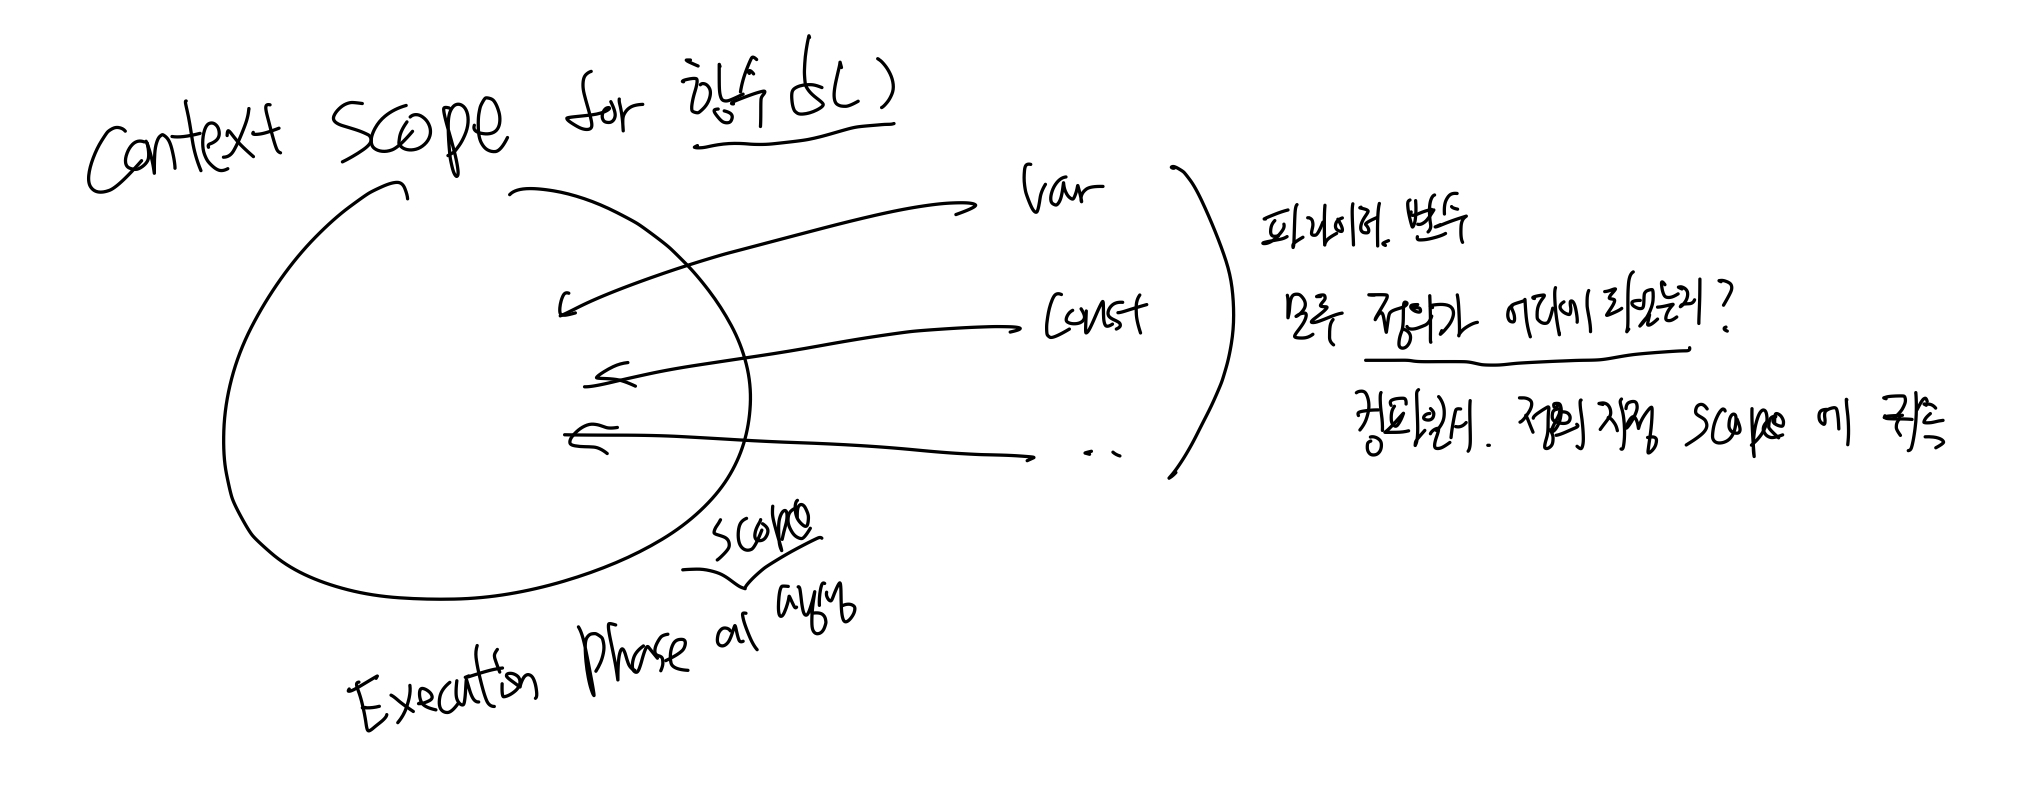 Context scope for 함수 d()
var
const
..
파라미터. 변수
모두 정의가 어디에 되있는지?
컴파일시. 정의 지점 scope 에 귀속
scope
Execution Phase 에